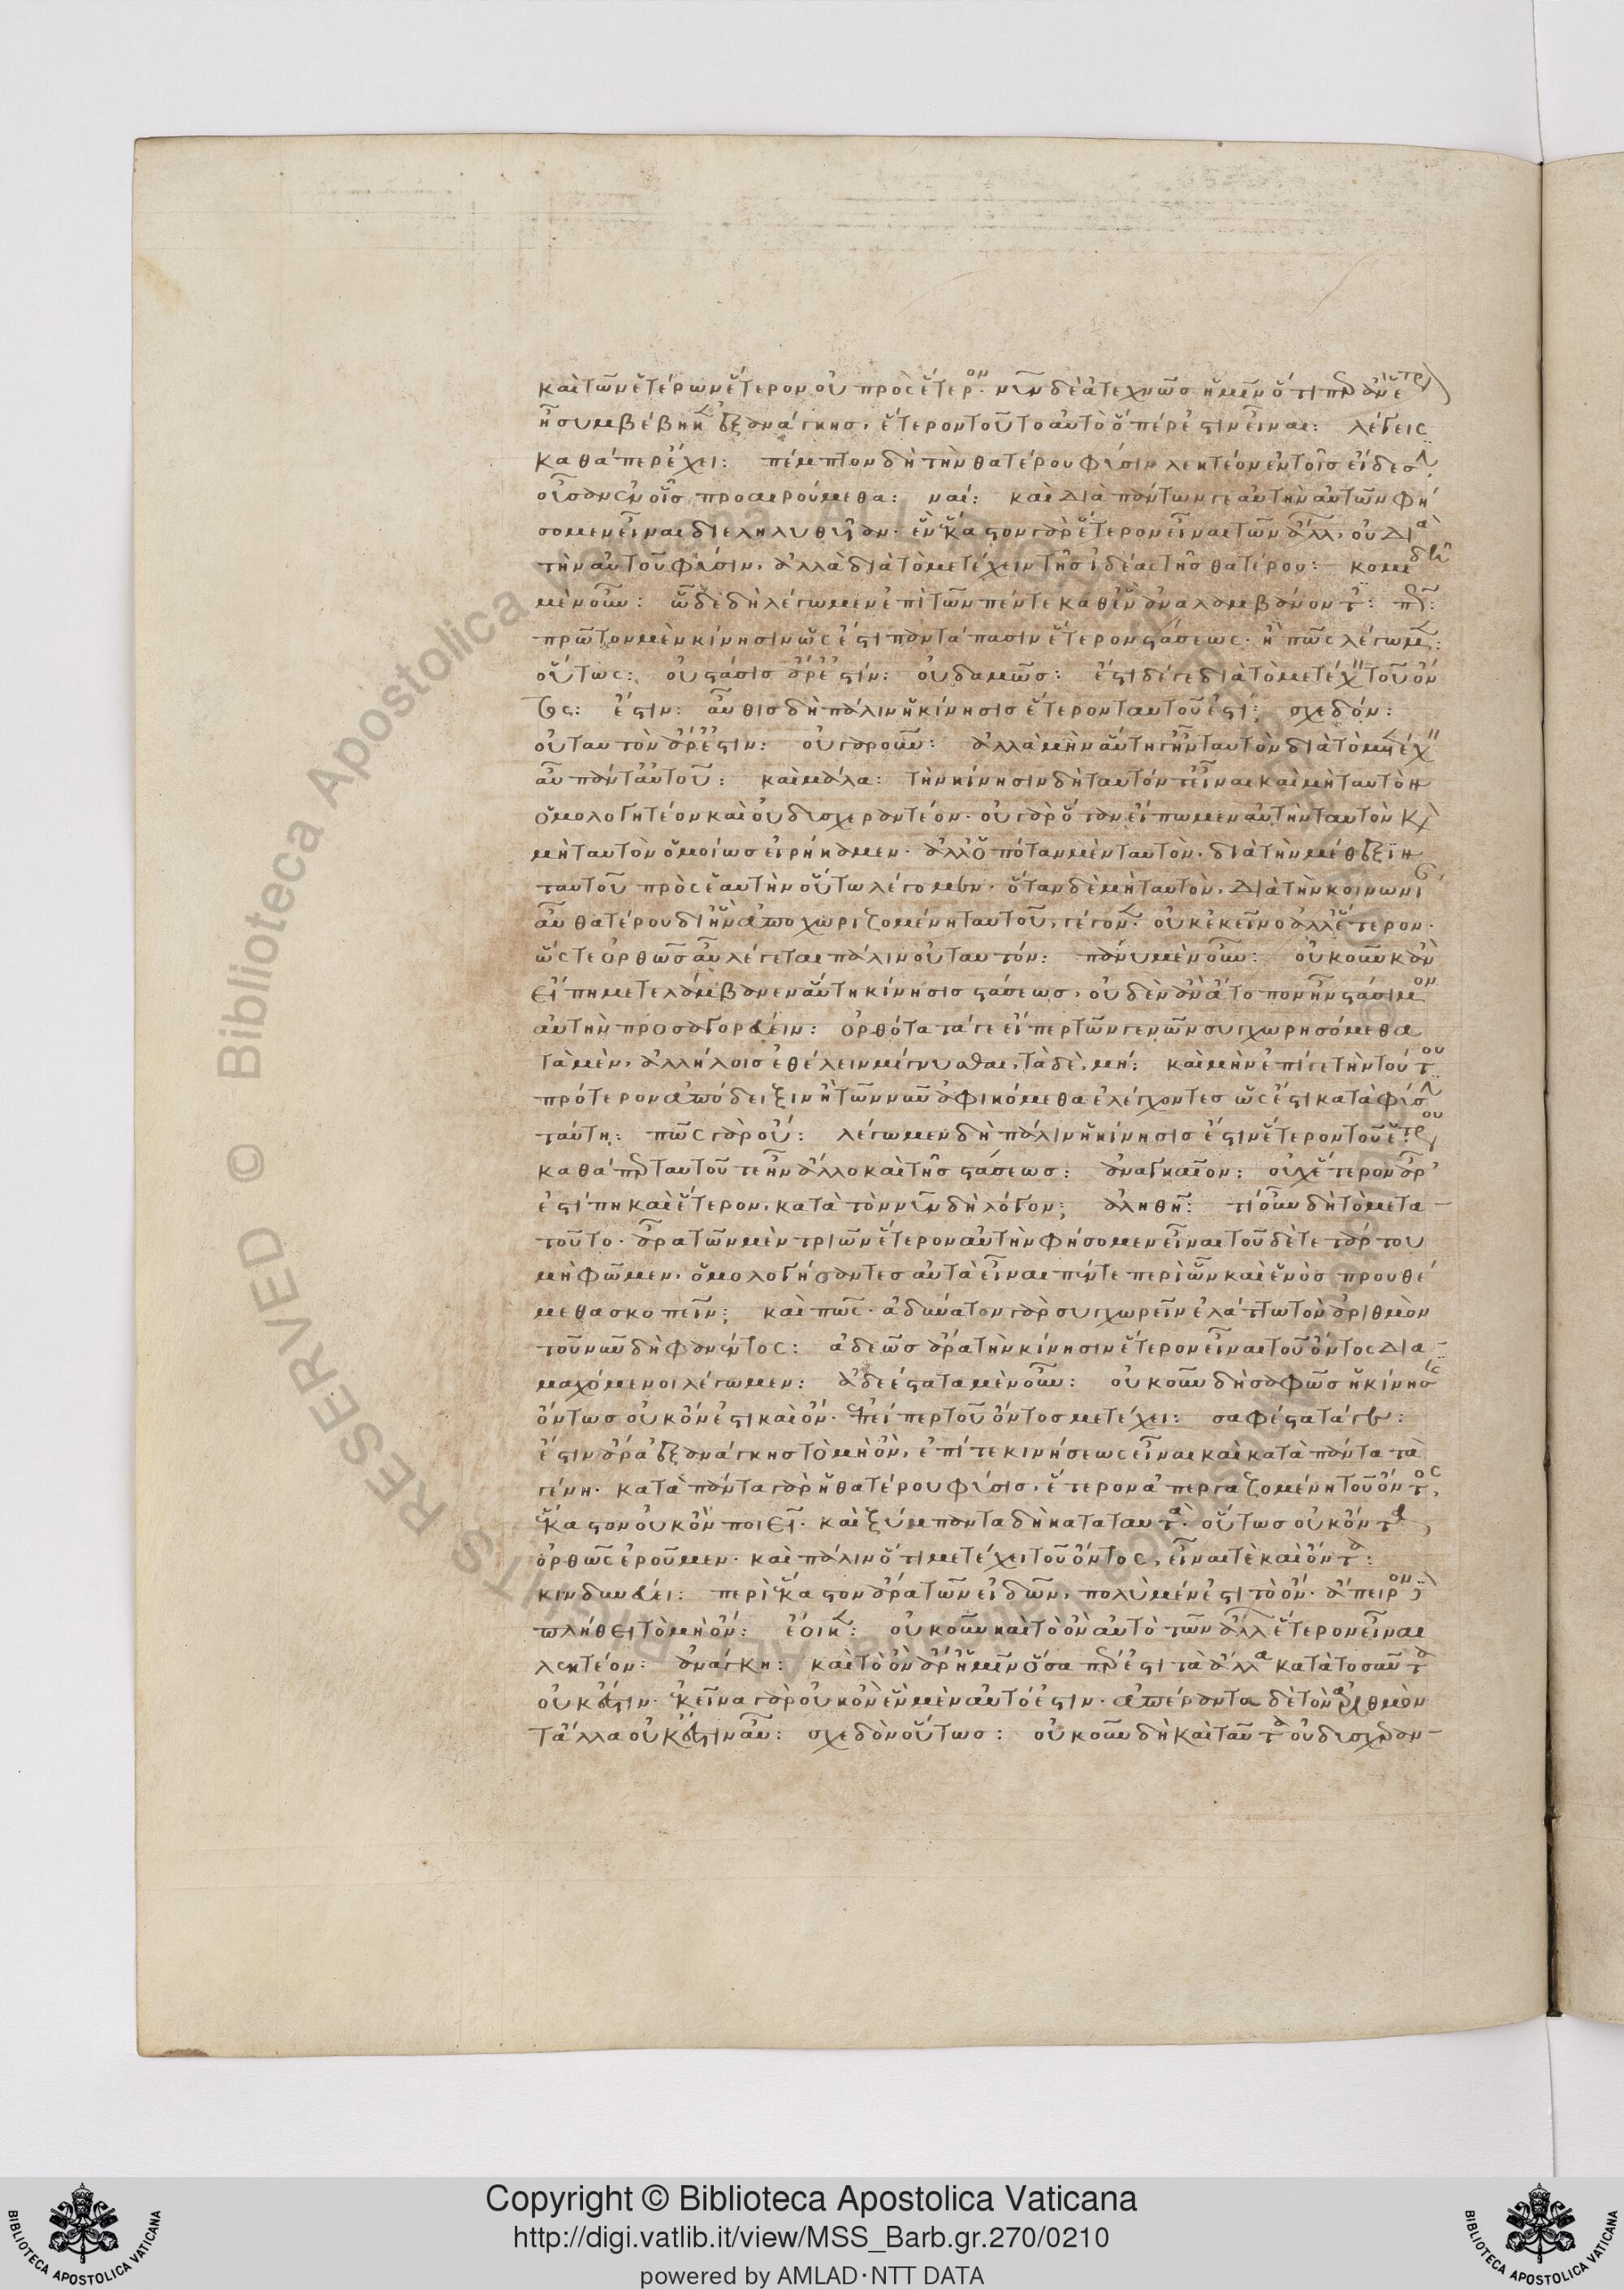 καὶ τῶν ἑτέρων ἕτερον οὐ πρὸς ἕτερον· νῦν δὲ ἀτεχνῶς ἡμῖν ὅτι περ ἂν ἕτερ
ἦ συμβέβηκεν ἐξ ἀνάγκης, ἕτερον τοῦτο αὐτὸ ὅπέρ ἐστιν εἶναι: λέγεις
καθάπερ ἔχει: πέμπτον δὴ τὴν θατέρου φύσιν λεκτέον ἐν τοῖς εἴδεσιν
οὖσαν ἐν οἷς προαιρούμεθα: ναί: καὶ διὰ πάντων γε αὐτὴν αὐτῶν φή
σομεν εἶναι διεληλυθυῖαν· ἓν ἕκαστον γὰρ ἕτερον εἶναι τῶν ἄλλ, οὐ διὰ
τὴν αὑτοῦ φύσιν, ἀλλὰ διὰ τὸ μετέχειν τῆς ἰδέας τῆς θατέρου: κομιδῆ
μὲν οὖν: ὧδε δὴ λέγωμεν ἐπὶ τῶν πέντε καθ' ἓν ἀναλαμβάνοντ: πῶς:
πρῶτον μὲν κίνησιν ὡς ἔστι παντάπασιν ἕτερον στάσεως· ἢ πῶς λέγωμεν:
οὕτως: οὐ στάσις ἄρ' ἐστίν: οὐδαμῶς: ἔστι δέ γε διὰ τὸ μετέχειν τοῦ ὄν
τος: ἔστιν: αὖθις δὴ πάλιν ἡ κίνησις ἕτερον ταυτοῦ ἐστί: σχεδόν:
οὐ ταυτὸν ἄρ' ἐστιν: οὐ γὰρ οὖν: ἀλλὰ μὴν αὕτη γ' ἦν ταυτὸν διὰ τὸ μετέχειν
αὖ πάντ' αὐτοῦ: καὶ μάλα: τὴν κίνησιν δὴ ταυτόν τ' εἶναι καὶ μὴ ταυτὸν
ὁμολογητέον καὶ οὐ δυσχεραντέον· οὐ γὰρ ὅταν εἴπωμεν αὐτὴν ταυτὸν καὶ
μὴ ταυτὸν ὁμοίως εἰρήκαμεν· ἀλλ' ὁπόταν μὲν ταυτὸν, διὰ τὴν μέθεξιν
ταυτοῦ πρὸς ἑαυτὴν οὕτω λέγομεν· ὅταν δὲ μὴ ταυτὸν, διὰ τὴν κοινωνί
αν θατέρου δι' ἣν ἀποχωριζομένη ταυτοῦ, γέγονεν οὐκ ἐκεῖνο ἀλλ' ἕτερον·
ὥστε ὀρθῶς αὖ λέγεται πάλιν οὐ ταυτόν: πάνυ μὲν οὖν: οὐκοῦν κἂν
εἴ πη μετελάμβανεν αὕτη κίνησις στάσεως, οὐδὲν ἂν ἄτοπον ἦν στάσιμον
αὐτὴν προσαγορεύειν: ὀρθότατά γε εἴπερ τῶν γενῶν συγχωρησόμεθα
τὰ μὲν, ἀλλήλοις ἐθέλειν μίγνυσθαι, τὰ δὲ, μή: καὶ μὴν ἐπί γε τὴν τούτου
πρότερον ἀπόδειξιν ἢ τῶν νῦν ἀφικόμεθα ἐλέγχοντες ὡς ἔστι κατὰ φύσιν
ταύτη: πῶς γὰρ οὔ: λέγωμεν δὴ πάλιν ἡ κίνησις ἔστιν ἕτερον τοῦ ἑτέρου
καθάπερ ταυτοῦ τε ἦν ἄλλο καὶ τῆς στάσεως: ἀναγκαῖον: οὐχ ἕτερον ἄρ'
ἐστί πη καὶ ἕτερον, κατὰ τὸν νῦν δὴ λόγον; ἀληθῆ: τί οὖν δὴ τὸ μετὰ
τοῦτο· ἆρα τῶν μὲν τριῶν ἕτερον αὐτὴν φήσομεν εἶναι τοῦ δὲ τετάρτου
μὴ φῶμεν, ὁμολογήσαντες αὐτὰ εἶναι πέντε περὶ ὧν καὶ ἐν οἷς προυθέ
μεθα σκοπεῖν; καὶ πῶς· ἀδύνατον γὰρ συγχωρεῖν ἐλάττω τὸν ἀριθμὸν
τοῦ νῦν δὴ φανέντος: ἀδεῶς ἄρα τὴν κίνησιν ἕτερον εἶναι τοῦ ὄντος δια
μαχόμενοι λέγωμεν: ἀδεέστατα μὲν οὖν: οὐκοῦν δὴ σαφῶς ἡ κίνησις
ὄντως οὐκ ὄν ἐστι καὶ ὄν· ἐπείπερ τοῦ ὄντος μετέχει: σαφέστατά γε:
ἔστιν ἄρα ἐξ ἀνάγκης τὸ μὴ ὄν, ἐπί τε κινήσεως εἶναι καὶ κατὰ πάντα τὰ
γένη· κατὰ πάντα γὰρ ἡ θατέρου φύσις, ἕτερον ἀπεργαζομένη τοῦ ὄντος,
ἕκαστον οὐκ ὂν ποιεῖ· καὶ ξύμπαντα δὴ κατὰ ταυτὰ· οὕτως οὐκ ὄντα
ὀρθῶς ἐροῦμεν· καὶ πάλιν ὅτι μετέχει τοῦ ὄντος, εἶναί τε καὶ ὄντα:
κινδυνεύει: περὶ ἕκαστον ἄρα τῶν εἰδῶν, πολὺ μέν ἐστι τὸ ὄν· ἄπειρον δὲ
πλήθει τὸ μὴ ὄν: ἔοικεν: οὐκοῦν καὶ τὸ ὂν αὐτὸ τῶν ἄλλ ἕτερον εἶναι
λεκτέον: ἀνάγκη: καὶ τὸ ὂν ἄρ' ἡμῖν ὅσα πέρ ἐστι τὰ ἄλλα κατὰ τοσαῦτα
οὐκ ἔστιν· ἐκεῖνα γὰρ οὐκ ὂν ἓν μὲν αὐτό ἐστιν· ἀπέραντα δὲ τὸν ἀριθμὸν
τἆλλα οὐκ ἔστιν αὖ: σχεδὸν οὕτως: οὐκοῦν δὴ καὶ ταῦτα οὐ δυσχεραν
Copyright © Biblioteca Apostolica Vaticana
http://digi.vatlib.it/view/MSS_Barb.gr.270/0210
powered by AMLAD·NTT DATA
BIBLIOTECA APOSTOLICA VATICANA
BIBLIOTECA APOSTOLICA VATICANA